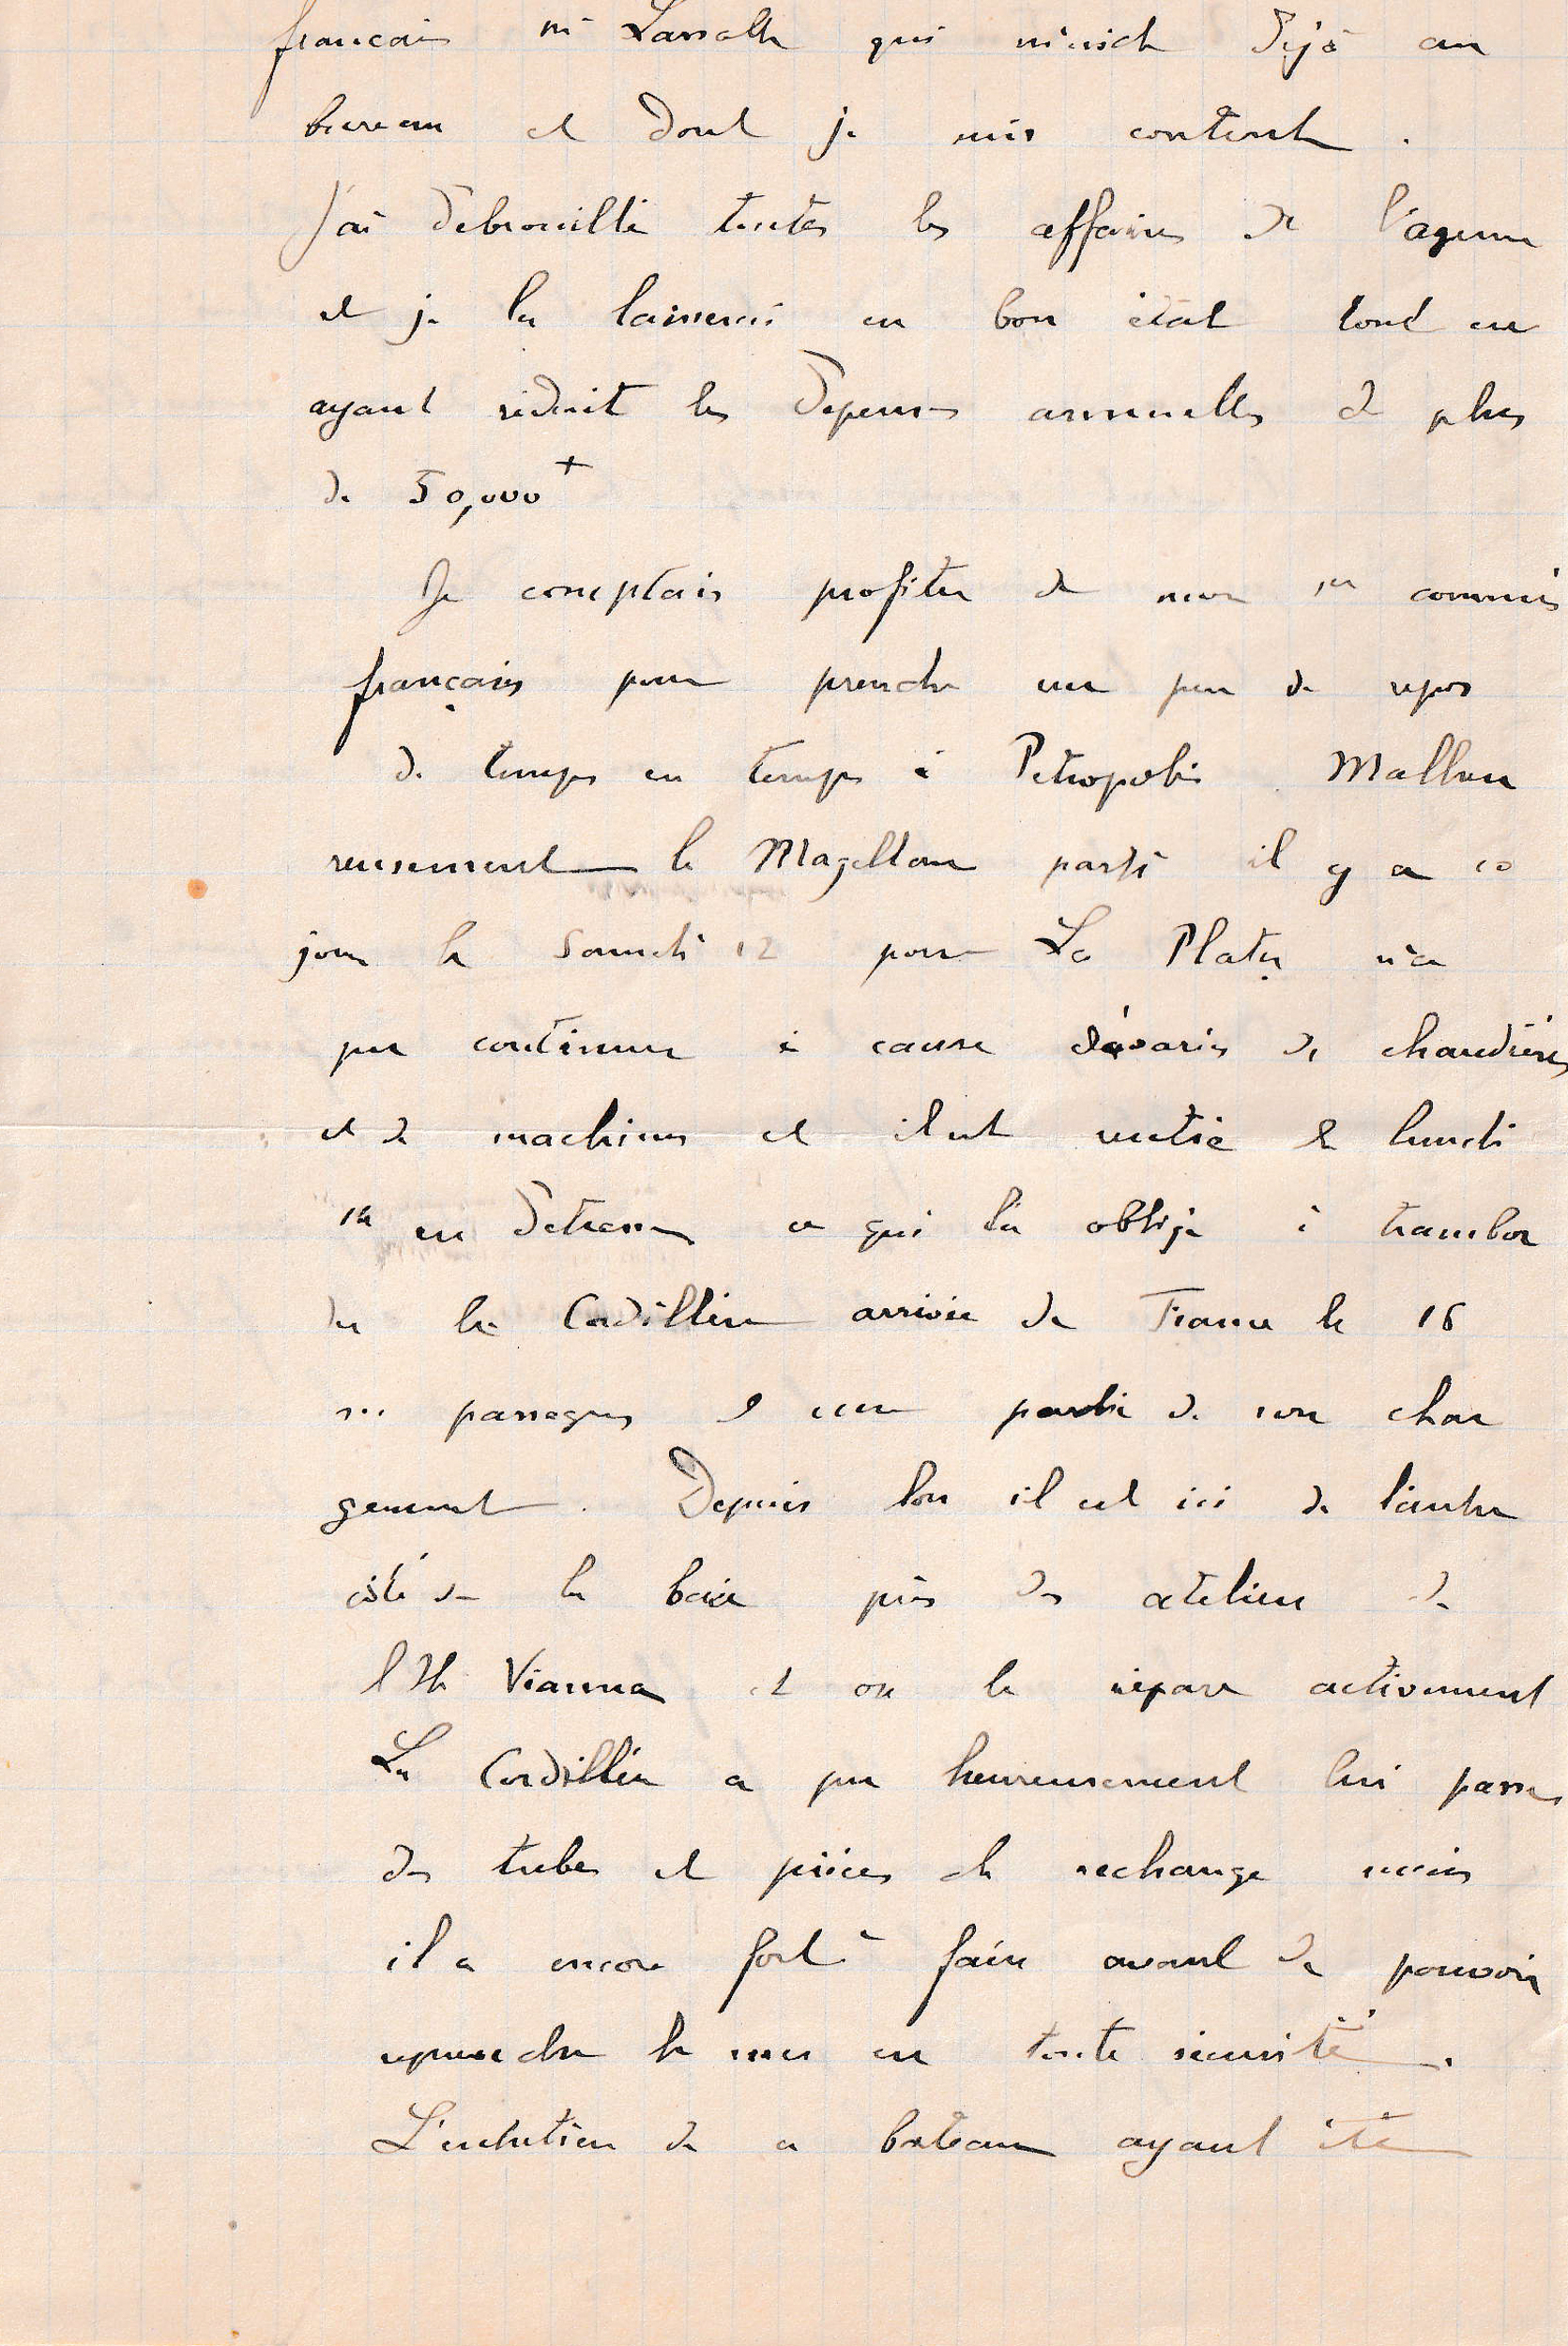 français Mr Lassalle qui m'aide déjà au
bureau et dont je suis content.
J'ai débrouillé toutes les affaires de l'agence
et je la laisserai en bon état tout en
ayant réduit les dépenses annuelles de plus
de 50,000
Je comptais profiter de mon 1er commis
français pour prendre un peu de repos
de temps en temps à Petropolis. Malheu
reusement le Magellan parti il y a 10
jours le Samedi 12 pour La Plata n'a
pu continuer à cause d'avaries de chaudières
et de machines et il est rentré le lundi
14 en détresse ce qui l'a obligé à transbor
der la Cordillère arrivée de France le 16
ses passagers et une partie de son char
gement. Depuis lors il est ici de l'autre
côté de la baie près des ateliers de
Vianna et on le répare activement
La Cordillère a pu heureusement lui passer
des tubes et pièces de rechange mais
il a encore fort à faire avant de pouvoir
reprendre la mer en toute sécurité.
L'entretien de ce bateau ayant été